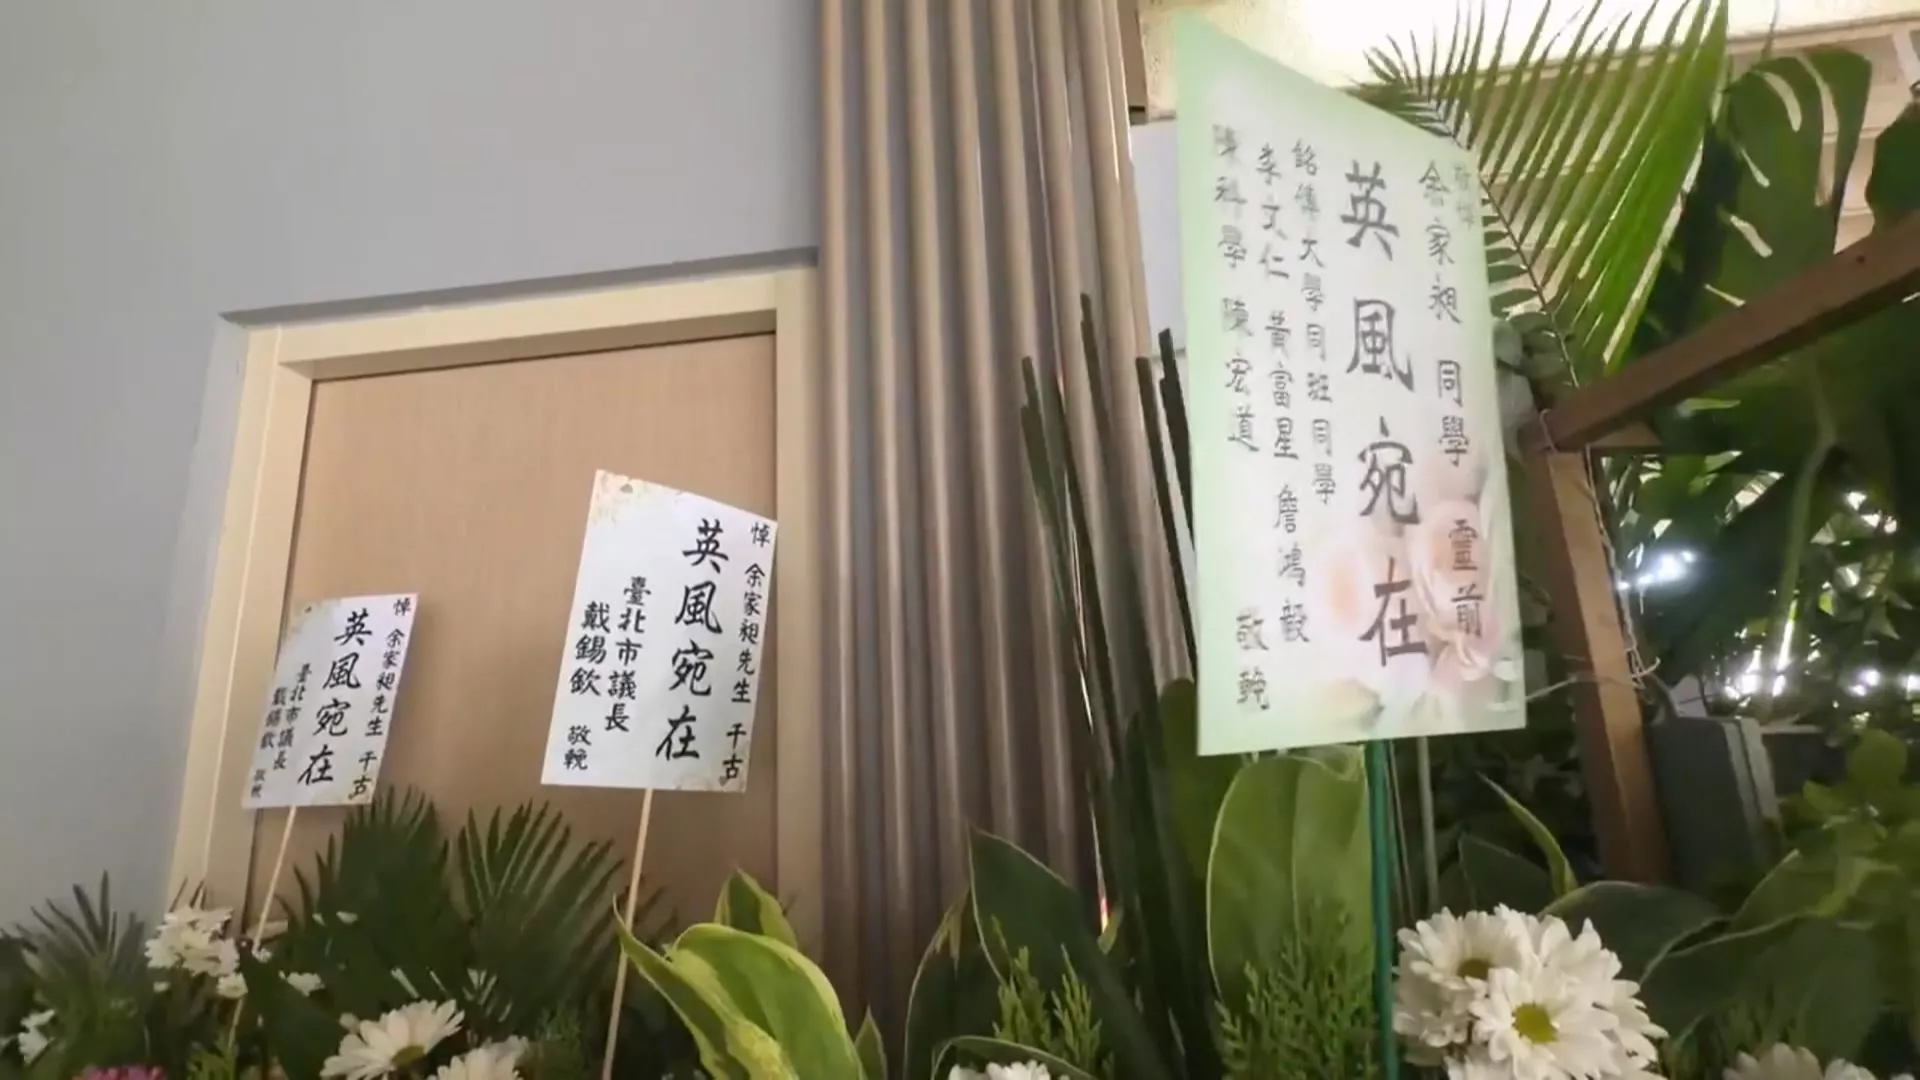 敬悼
余家昶 同學 靈前
英風宛在
銘傳大學同班同學
李文仁 黃富星 詹鴻毅
陳科學 陳宏道
敬輓
悼 余家昶先生 千古
英風宛在
臺北市議長
戴錫欽 敬輓
悼 余家昶先生 千古
英風宛在
臺北市議長
戴錫欽 敬輓